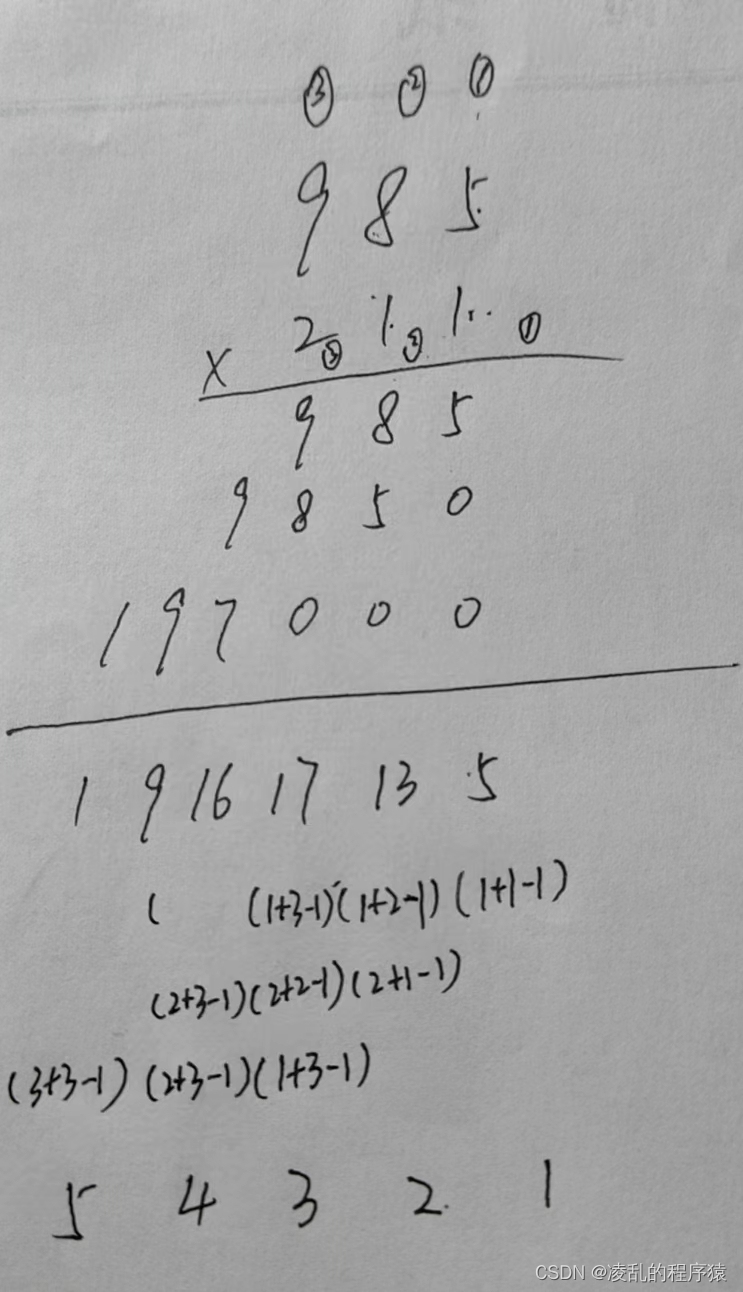 ③ ② ①
9 8 5
× 2 ③ 1 ② 1 ①
9 8 5
9 8 5 0
1 9 7 0 0 0
1 9 16 17 13 5
( (1+3-1) (1+2-1) (1+1-1)
(2+3-1) (2+2-1) (2+1-1)
(3+3-1) (2+3-1) (1+3-1)
5 4 3 2 1
CSDN @凌乱的程序猿